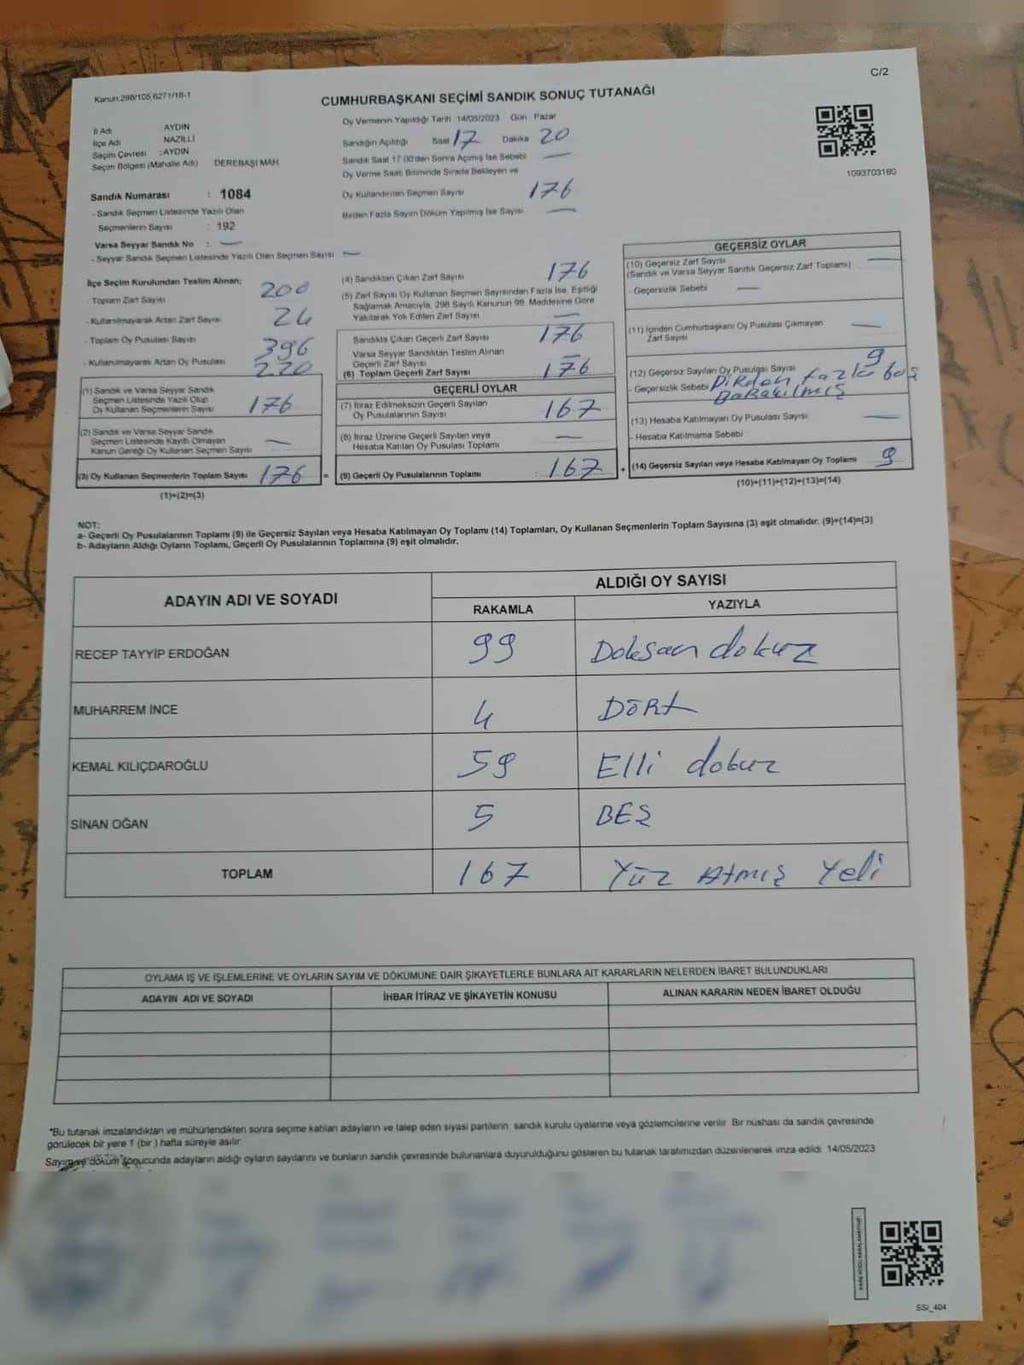 C/2
Kanun:298/105,6271/18-1
CUMHURBAŞKANI SEÇİMİ SANDIK SONUÇ TUTANAĞI
İl Adı AYDIN
İlçe Adı NAZİLLİ
Seçim Çevresi :AYDIN
Seçim Bölgesi (Mahalle Adı) DEREBAŞI MAH
Sandık Numarası : 1084
- Sandık Seçmen Listesinde Yazılı Olan
Seçmenlerin Sayısı : 192
Varsa Seyyar Sandık No : —
- Seyyar Sandık Seçmen Listesinde Yazılı Olan Seçmen Sayısı —
Oy Vermenin Yapıldığı Tarih 14/05/2023 Gün Pazar
Sandığın Açıldığı Saat 17 Dakika 20
Sandık Saat 17:00'den Sonra Açılmış İse Sebebi —
Oy Verme Saati Bitiminde Sırada Bekleyen ve
Oy Kullandırılan Seçmen Sayısı 176
Birden Fazla Sayım Döküm Yapılmış İse Sayısı —
1093703180
İlçe Seçim Kurulundan Teslim Alınan;
- Toplam Zarf Sayısı 200
- Kullanılmayarak Artan Zarf Sayısı 24
- Toplam Oy Pusulası Sayısı 396
- Kullanılmayarak Artan Oy Pusulası 220
(1) Sandık ve Varsa Seyyar Sandık
Seçmen Listesinde Yazılı Olup
Oy Kullanan Seçmenlerin Sayısı 176
(2) Sandık ve Varsa Seyyar Sandık
Seçmen Listesinde Kayıtlı Olmayan
Kanun Gereği Oy Kullanan Seçmen Sayısı —
(3) Oy Kullanan Seçmenlerin Toplam Sayısı 176 =
(1)+(2)=(3)
(4) Sandıktan Çıkan Zarf Sayısı 176
(5) Zarf Sayısı Oy Kullanan Seçmen Sayısından Fazla İse, Eşitliği
Sağlamak Amacıyla, 298 Sayılı Kanunun 98. Maddesine Göre
Yakılarak Yok Edilen Zarf Sayısı —
Sandıkta Çıkan Geçerli Zarf Sayısı 176
Varsa Seyyar Sandıktan Teslim Alınan
Geçerli Zarf Sayısı —
(6) Toplam Geçerli Zarf Sayısı 176
GEÇERLİ OYLAR
(7) İtiraz Edilmeksizin Geçerli Sayılan
Oy Pusulalarının Sayısı 167
(8) İtiraz Üzerine Geçerli Sayılan veya
Hesaba Katılan Oy Pusulası Toplamı —
(9) Geçerli Oy Pusulalarının Toplamı : 167 +
GEÇERSİZ OYLAR
(10) Geçersiz Zarf Sayısı —
(Sandık ve Varsa Seyyar Sandık Geçersiz Zarf Toplamı)
- Geçersizlik Sebebi —
(11) İçinden Cumhurbaşkanı Oy Pusulası Çıkmayan
Zarf Sayısı —
(12) Geçersiz Sayılan Oy Pusulası Sayısı 9
- Geçersizlik Sebebi Birden fazla boş
Bırakılmış
(13) Hesaba Katılmayan Oy Pusulası Sayısı —
- Hesaba Katılmama Sebebi
(14) Geçersiz Sayılan veya Hesaba Katılmayan Oy Toplamı 9
(10)+(11)+(12)+(13)=(14)
NOT:
a- Geçerli Oy Pusulalarının Toplamı (9) ile Geçersiz Sayılan veya Hesaba Katılmayan Oy Toplamı (14) Toplamları, Oy Kullanan Seçmenlerin Toplam Sayısına (3) eşit olmalıdır. (9)+(14)=(3)
b- Adayların Aldığı Oyların Toplamı, Geçerli Oy Pusulalarının Toplamına (9) eşit olmalıdır.
ADAYIN ADI VE SOYADI
ALDIĞI OY SAYISI
RAKAMLA YAZIYLA
RECEP TAYYİP ERDOĞAN 99 Doksan dokuz
MUHARREM İNCE 4 Dört
KEMAL KILIÇDAROĞLU 59 Elli dokuz
SİNAN OĞAN 5 BEŞ
TOPLAM 167 Yüz Atmış Yeli
OYLAMA İŞ VE İŞLEMLERİNE VE OYLARIN SAYIM VE DÖKÜMÜNE DAİR ŞİKAYETLERLE BUNLARA AİT KARARLARIN NELERDEN İBARET BULUNDUKLARI
ADAYIN ADI VE SOYADI İHBAR İTİRAZ VE ŞİKAYETİN KONUSU ALINAN KARARIN NEDEN İBARET OLDUĞU
*Bu tutanak imzalandıktan ve mühürlendikten sonra seçime katılan adayların ve talep eden siyasi partilerin sandık kurulu üyelerine veya gözlemcilerine verilir. Bir nüshası da sandık çevresinde
görülecek bir yere 1 (bir ) hafta süreyle asılır.
Sayım ve döküm sonucunda adayların aldığı oyların sayılarını ve bunların sandık çevresinde bulunanlara duyurulduğunu gösteren bu tutanak tarafımızdan düzenlenerek imza edildi. 14/05/2023
SSi_404